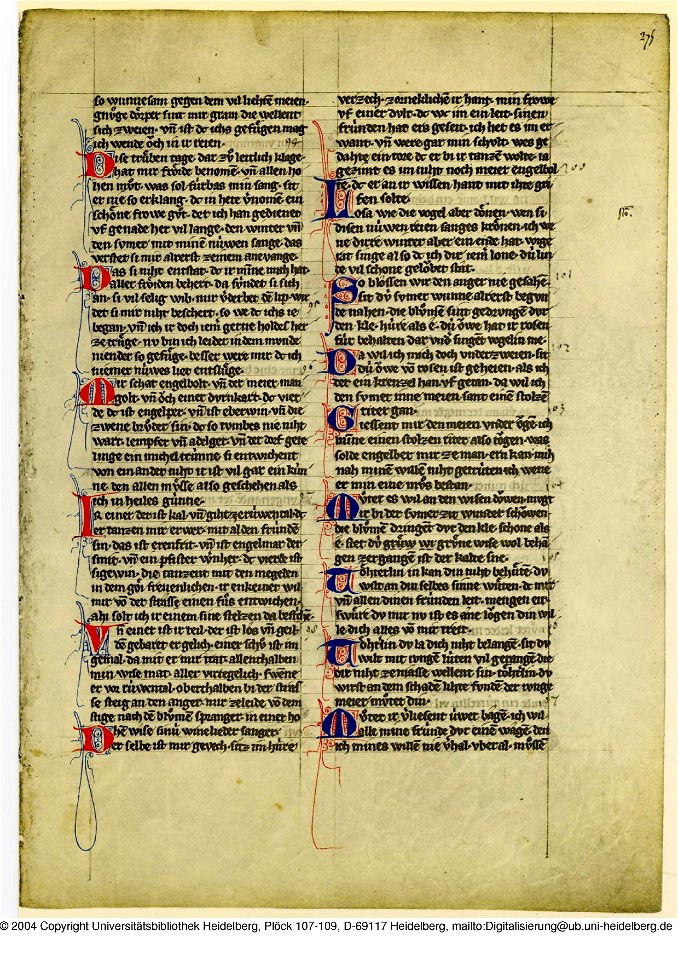 275
so wunnesam gegen dem vil liehten meien·
gnůge dörper sint mir gram die wellent
sich zweien· vn̄ ist dc ichs gefůgen mag
ich wende öch in ir reien·
Dise trůben tage· dar zů leitlich klage
hat mir fröide benomen· vn̄ allen ho
hen můt· was sol fúrbas min sang· sit
er nie so erklang· dc in hete vernomen ein
schöne frowe gůt· der ich han gedienet
vf genade her vil lange· den winter vn̄
den sumer mit minē núwen sange· das
verstet si mir alrerst zeinem anevange·
Das si niht entstat· dc ir minne mich hat
aller fröiden behert· da súndet si sich
an· si vil selig wib· mir verderbet dē lip· wir
det si mir niht beschert· so we dc ichs ie
began· vn̄ ich ir doch iem̄ gerne holdes her
ze trůge· nv bin ich leider in dem mvnde
niender so gefůge· besser were mir dc ich
niemer núwes liet entslůge·
Mir schat engelbolt· vn̄ der meier man
golt· vn̄ öch einer dúrnkart· dc vier
de dc ist engelper· vn̄ ist eberwin· vn̄ die
zwene brůder sin· dc so tumbes nie niht
wart· lempfer vn̄ adelger· vn̄ der dorf gete
linge ein michel trúnne· si entwichent
von ein ander niht· ir ist vil gar ein kún
ne· den allen můsse also geschehen als
ich in heiles gúnne·
Ia einer der ist kal· vn̄ giht ze rúwental dc
er tanzen mit er wer· mit al den frúndē
sin· das ist erenfrit· vn̄ ist engelmar der
smit· vn̄ ein pfister wernher· dc vierde ist
sigewin· die tanzent mit den megeden
in dem göi frevenlichen· ir enkeiner wil
mir vō der strasse einen fůs entwichen·
ahi solt ich ir einem sine stelzen da bestrichē·
Vn̄ einer ist ir teil· der ist los vn̄ geil·
dē gebaret er gelich· einer schů ist an
gemal· da mit er mir trat· allenthalben
min wise mat· aller virtegelich· swēne
er vv rúwental· oberthalben bi der stras
se steig an den anger· mir zeleide vō dem
stige nach dē blůmen spranger· in einer ho
hē wise sinú wineliedel sanger·
Der selbe ist mir gevech· sitz im húre
verzech· zorneklichē ir hant· min frowe
vf einer dvlt· dc we im ein leit· sinen
frúnden hat ers geseit· ich het es im er
want· vn̄ were gar min schvlt· wes ge
dahte ein tore dc er bi ir tanzē wolte· ia
gezimt es im niht noch meier engelbol
te· dc er an ir wissen hant mit ihte gri
fen solte·
Losa wie die vogel aber dönen· wen si
disen núwen reien sanges krönen· ich we
ne dirre winter aber ein ende hat· wige
rat singe al so dc ich dir iem̄ lone· dú lin
de vil schone gelöbet stat·
So blössen wir den anger nie gesahē·
sit dv sumer wunne alrerst begvn
de nahen· die blůmē sint gedrvngen dvr
den kle· húre als e· dú öwe hat ir rosen
fúr behalten dar vnd singet vogelin me·
Da wil ich mich doch vnderzweien· sit
dú öwe vō rosen ist geheien· als ich
der ein krenzel han vf getan· da wil ich
den sumer inne meien samt einē stolzē
ritter gan·
Giessent mir den meien vnder ögē· ich
minne einen stolzen riter also tögen· was
solde engelber mir ze man· ern kan mich
nah minē willē niht getrúten· ich wene
er min eine můs bestan·
Můter es wil an den wisen döwen· mugt
ir bi der sumer zit wunder schöwen
die blůmē dringent dvr den kle· schone als
e· stet dv grůny wi grůne wise wol beha
gen· zergangen ist der kalte sne·
Töhterlin in kan din niht behůte· dv
wilt an din selbes sinne wůten· dc mir
vn̄ allen dinen frúnden leit· mengen eit·
swůre dv mir nv ist es ane lögen· din wil
le dich alles vō mir treit·
Töhterlin dv la dich niht belangen· sit dv
wilt mit iungē lúten vil gegangē· die
dir niht ze masse wellent sin· töhterlin· dv
wirst an dem schade lihte fvnden· der iunge
meier můtet din·
Můter ir verliesent úwer bagē· ich wil
alle mine frúnde dvr einē wagē· den
ich mines willen nie verhal· vberal· můssē
© 2004 Copyright Universitätsbibliothek Heidelberg, Plöck 107-109, D-69117 Heidelberg, mailto:Digitalisierung@ub.uni-heidelberg.de